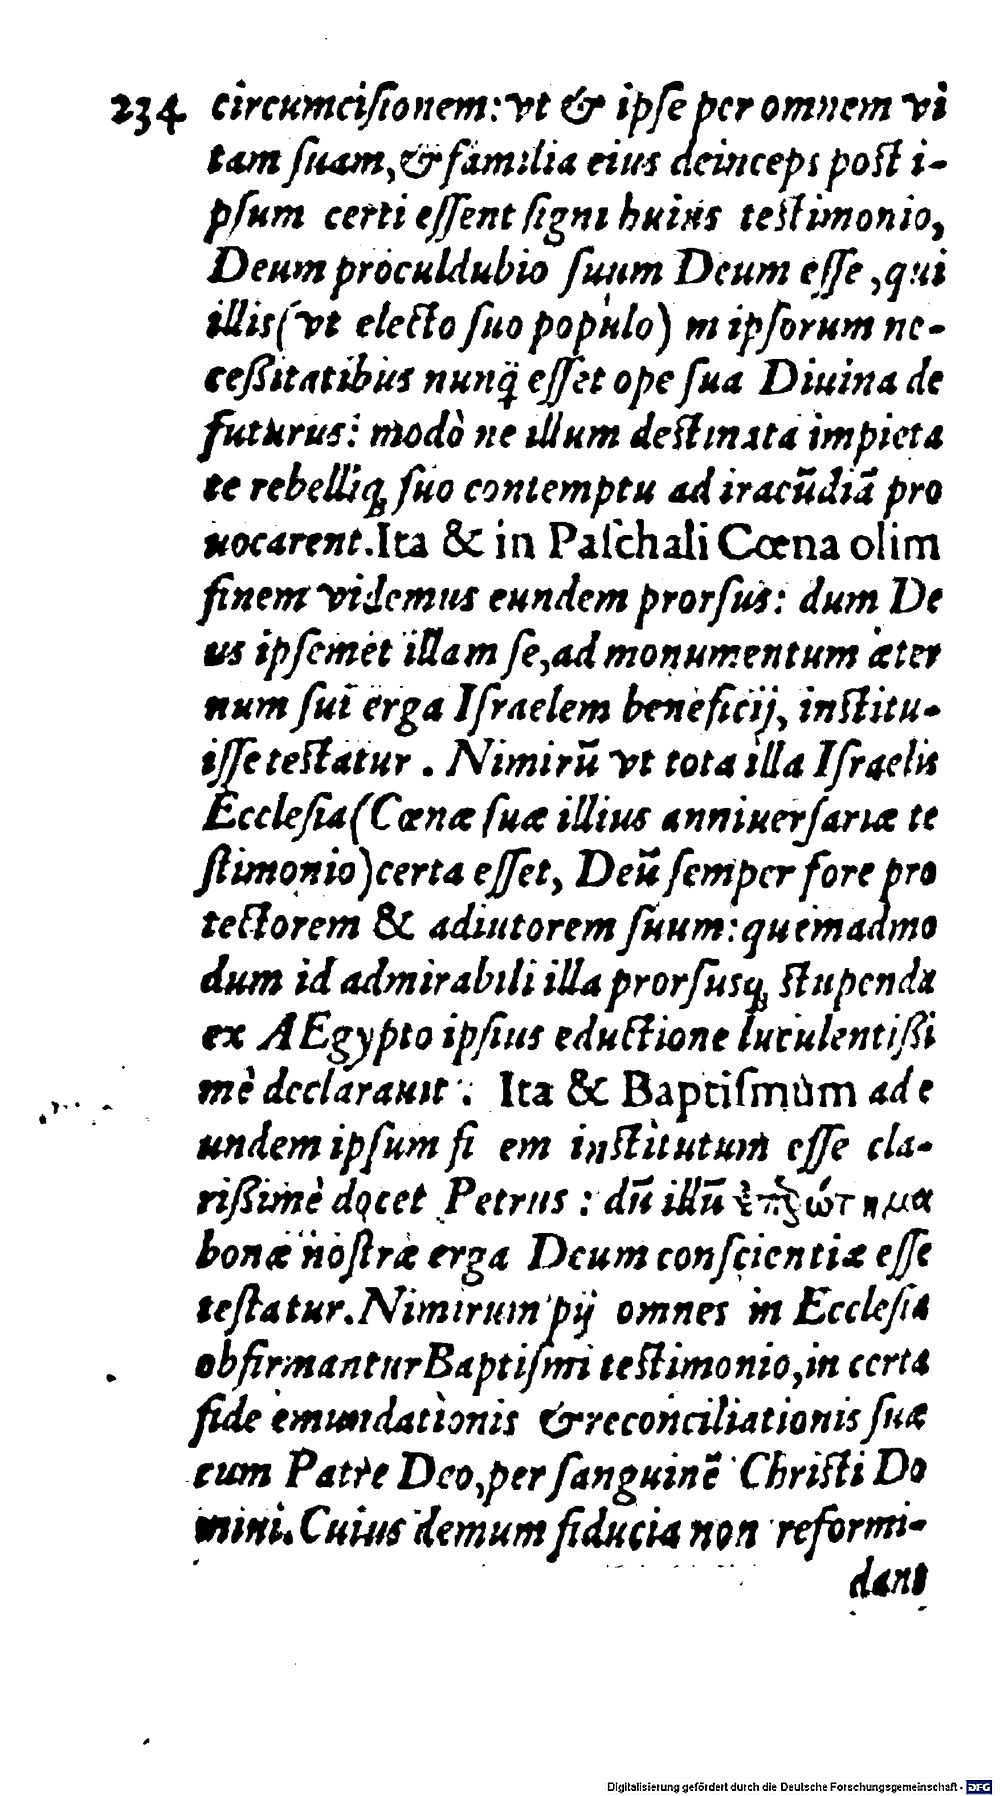 234 circumciſionem: vt & ipſe per omnem vi
tam ſuam, & familia eius deinceps poſt i-
pſum certi eſſent ſigni huius teſtimonio,
Deum proculdubio ſuum Deum eſſe, qui
illis (vt electo ſuo populo) in ipſorum ne-
ceßitatibus nunq̃ eſſet ope ſua Diuina de
futurus: modò ne illum deſtinata impieta
te rebelliq; ſuo contemptu ad iracũdiã pro
uocarent. Ita & in Paſchali Cœna olim
finem videmus eundem prorſus: dum De
us ipſemet illam ſe, ad monumentum æter
num ſui erga Iſraelem beneficij, inſtitu-
iſſe teſtatur. Nimirũ vt tota illa Iſraelis
Eccleſia (Cœnæ ſuæ illius anniuerſariæ te
ſtimonio) certa eſſet, Deũ ſemper fore pro
tectorem & adiutorem ſuum: quemadmo
dum id admirabili illa prorſusq; ſtupenda
ex AEgypto ipſius eductione luculentißi
mè declarauit. Ita & Baptiſmum ad e
undem ipſum fi em inſtitutum eſſe cla-
rißimè docet Petrus: dũ illũ ἐπερώτημα
bonæ noſtræ erga Deum conſcientiæ eſſe
teſtatur. Nimirum pij omnes in Eccleſia
obfirmantur Baptiſmi teſtimonio, in certa
fide emundationis & reconciliationis ſuæ
cum Patre Deo, per ſanguinẽ Chriſti Do
mini. Cuius demum fiducia non reformi-
dant
Digitalisierung gefördert durch die Deutsche Forschungsgemeinschaft - DFG